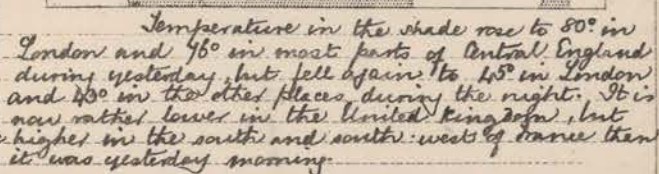 Temperature in the shade rose to 80° in
London and 76° in most parts of Central England
during yesterday, but fell again to 45° in London
and 43° in the other places, during the night. It is
now rather lower in the United Kingdom, but
higher in the south and south-west of France than
it was yesterday morning.